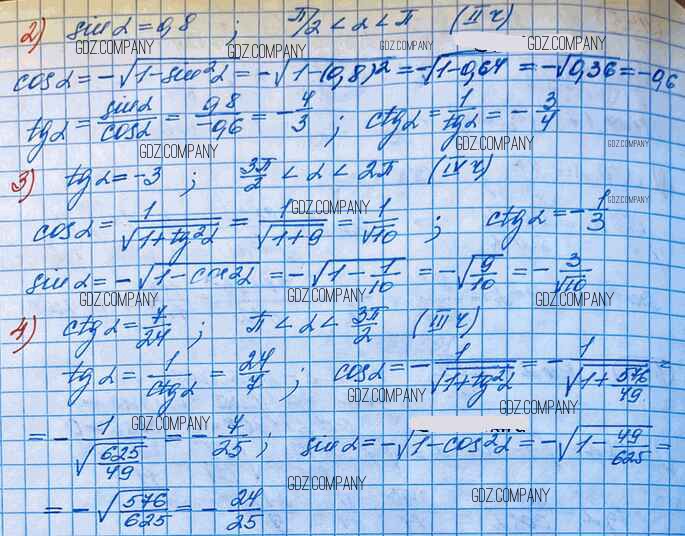 2) sin α = 0,8 ; π/2 < α < π (II ч)
GDZ.COMPANY GDZ.COMPANY GDZ.COMPANY
cos α = -√(1-sin²α) = -√(1-(0,8)²) = -√(1-0,64) = -√0,36 = -0,6
tg α = sin α/cos α = 0,8/-0,6 = -4/3 ; ctg α = 1/tg α = -3/4
GDZ.COMPANY GDZ.COMPANY GDZ.COMPANY
3) tg α = -3 ; 3π/2 < α < 2π (IV ч)
GDZ.COMPANY GDZ.COMPANY
cos α = 1/√(1+tg²α) = 1/√(1+9) = 1/√10 ; ctg α = -1/3
GDZ.COMPANY
sin α = -√(1-cos²α) = -√(1-1/10) = -√(9/10) = -3/√10
GDZ.COMPANY GDZ.COMPANY GDZ.COMPANY
4) ctg α = 7/24 ; π < α < 3π/2 (III ч)
GDZ.COMPANY GDZ.COMPANY
tg α = 1/ctg α = 24/7 ; cos α = -1/√(1+tg²α) = -1/√(1+576/49) =
GDZ.COMPANY GDZ.COMPANY
GDZ.COMPANY
= -1/√(625/49) = -7/25 ; sin α = -√(1-cos²α) = -√(1-49/625) =
GDZ.COMPANY GDZ.COMPANY
= -√(576/625) = -24/25